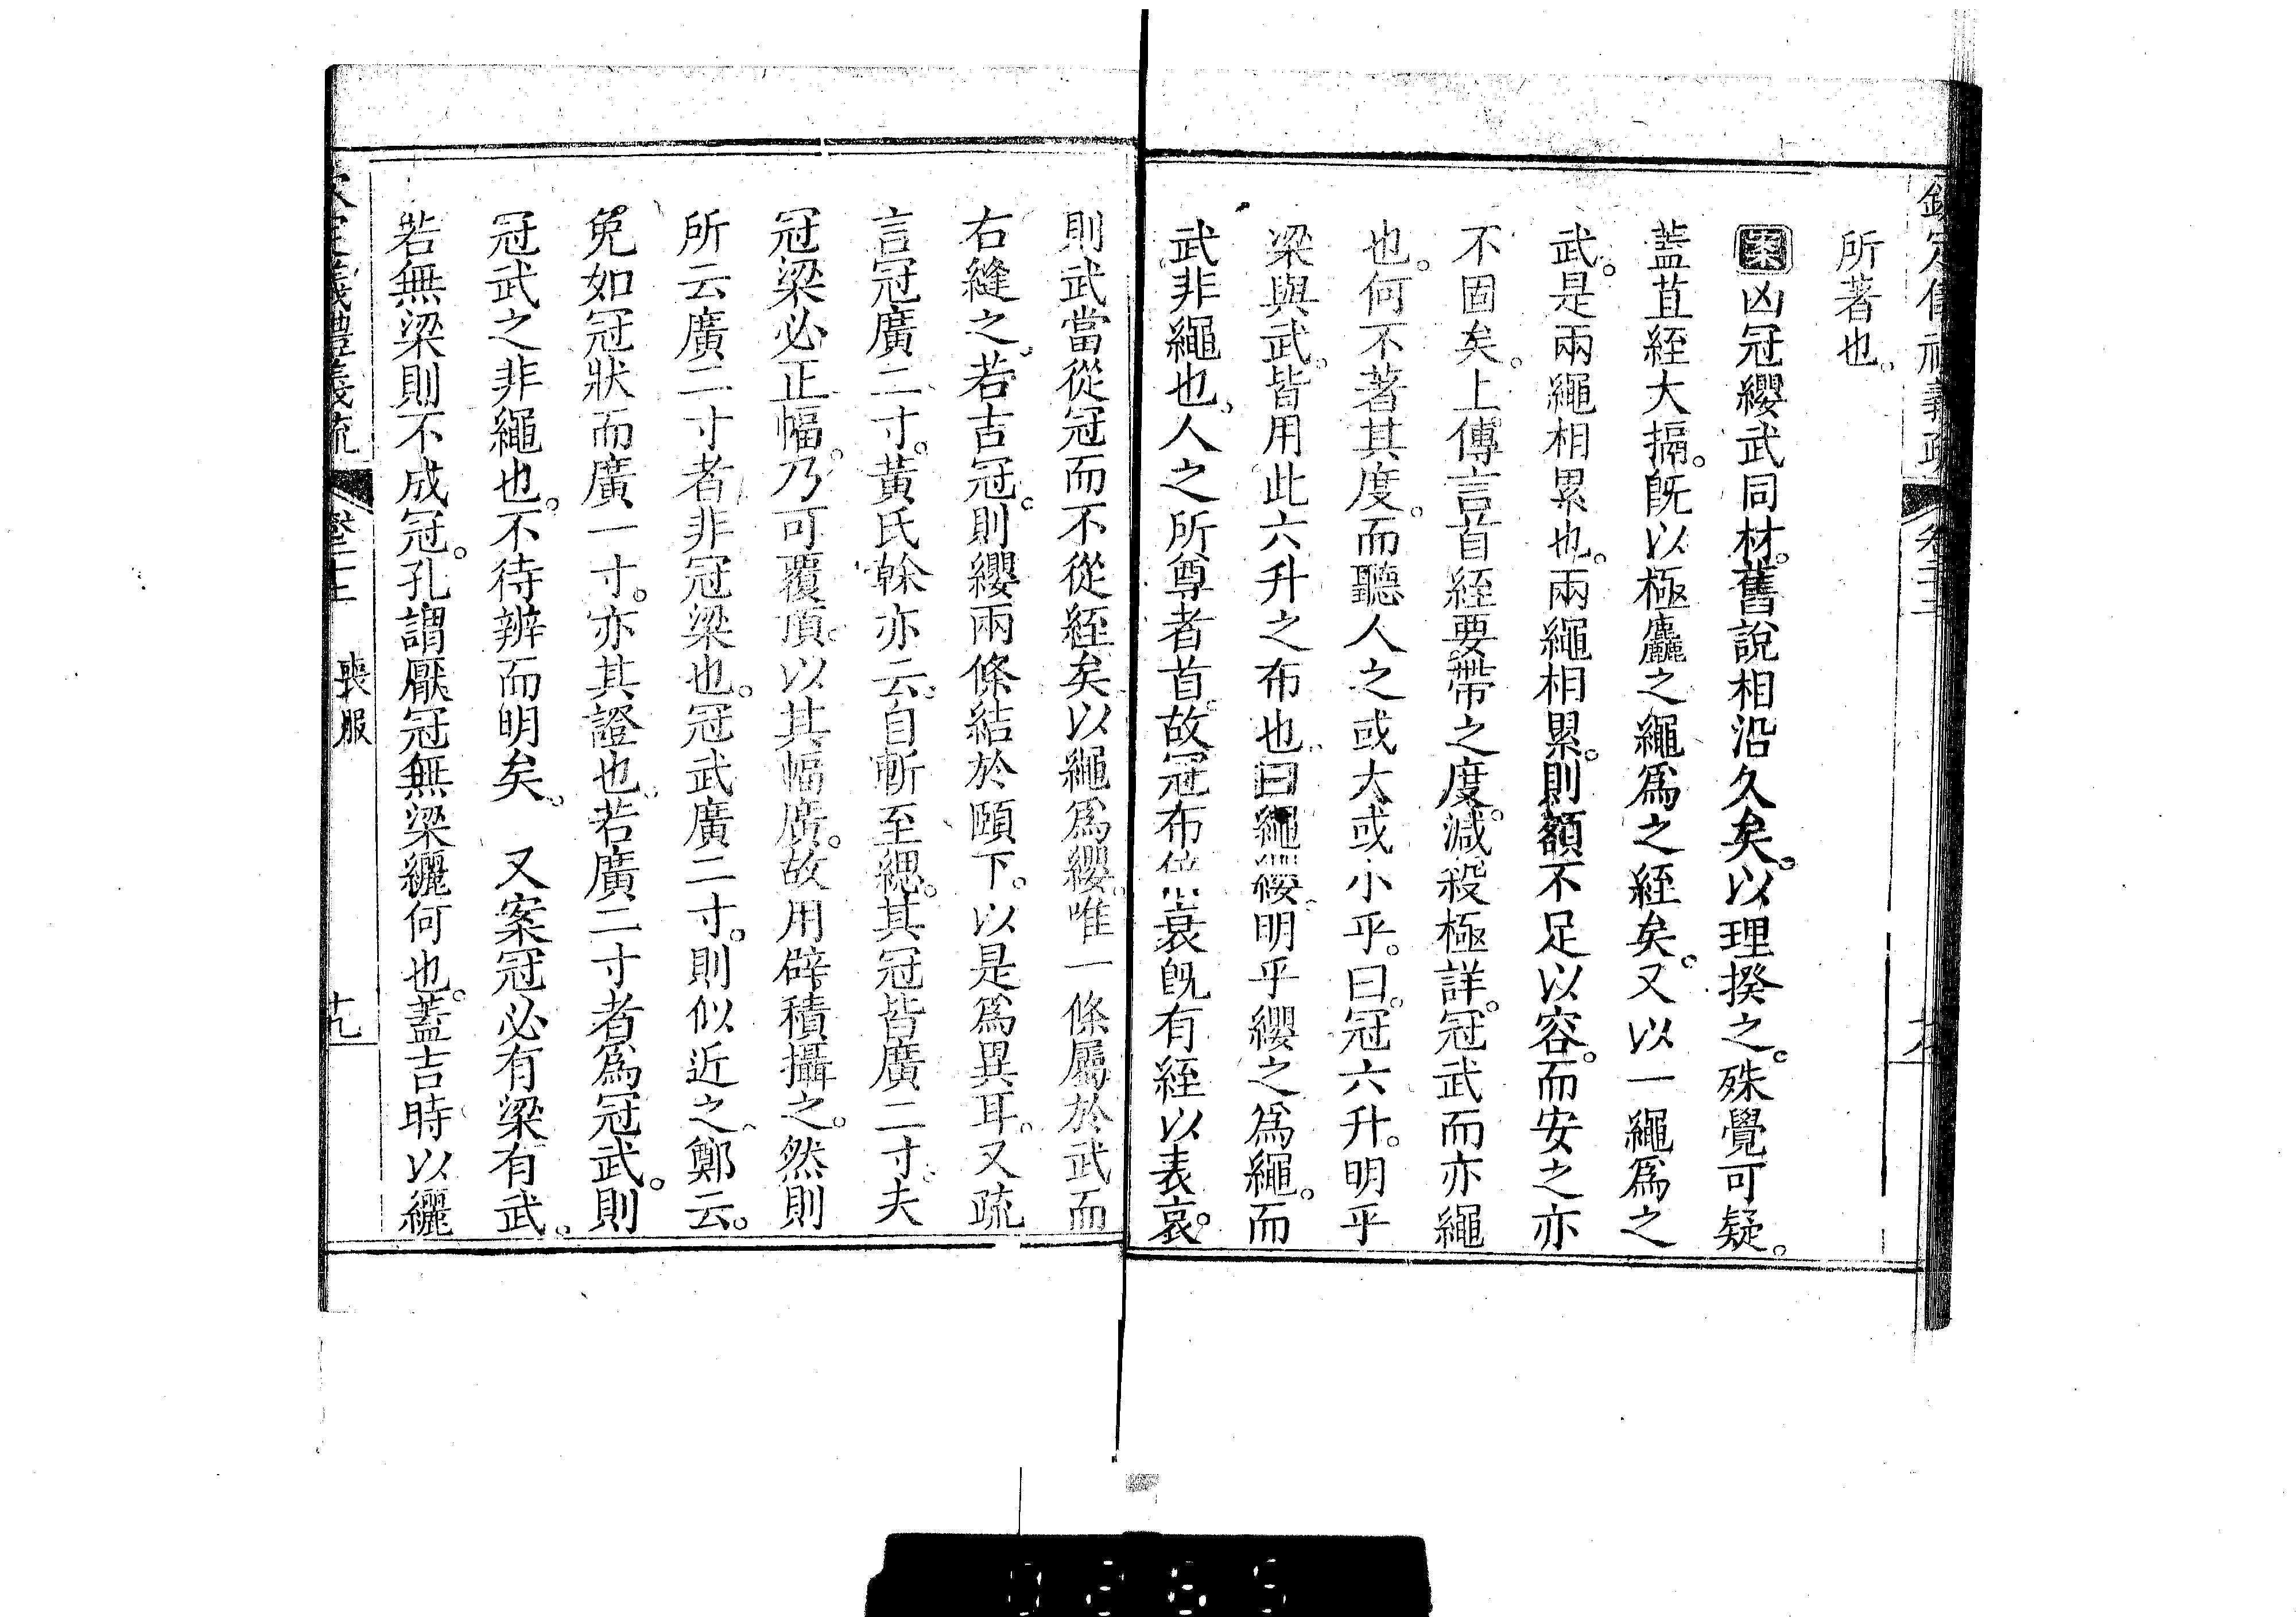 所著也。
案凶冠纓武同材。舊說相沿久矣。以理揆之。殊覺可疑。
蓋苴絰大搹。旣以極麤之繩爲之絰矣。又以一繩爲之
武。是兩繩相累也。兩繩相累。則額不足以容。而安之亦
不固矣。上傳言首絰要帶之度。減殺極詳。冠武而亦繩
也。何不著其度。而聽人之或大或小乎。曰。冠六升。明乎
梁與武。皆用此六升之布也。曰繩纓。明乎纓之爲繩。而
武非繩也。人之所尊者首。故冠布倍衰旣有絰以表哀。
則武當從冠而不從絰矣。以繩爲纓。唯一條屬於武而
右縫之。若吉冠。則纓兩條結於頤下。以是爲異耳。又疏
言冠廣二寸。黃氏榦亦云。自斬至緦。其冠皆廣二寸。夫
冠梁必正幅。乃可覆頂。以其幅廣。故用辟積攝之。然則
所云廣二寸者。非冠梁也。冠武廣二寸。則似近之。鄭云。
免如冠狀而廣一寸。亦其證也。若廣二寸者爲冠武。則
冠武之非繩也。不待辨而明矣。 又案冠必有梁有武。
若無梁則不成冠。孔謂厭冠無梁纚何也。蓋吉時以纚
義禮義疏 喪服